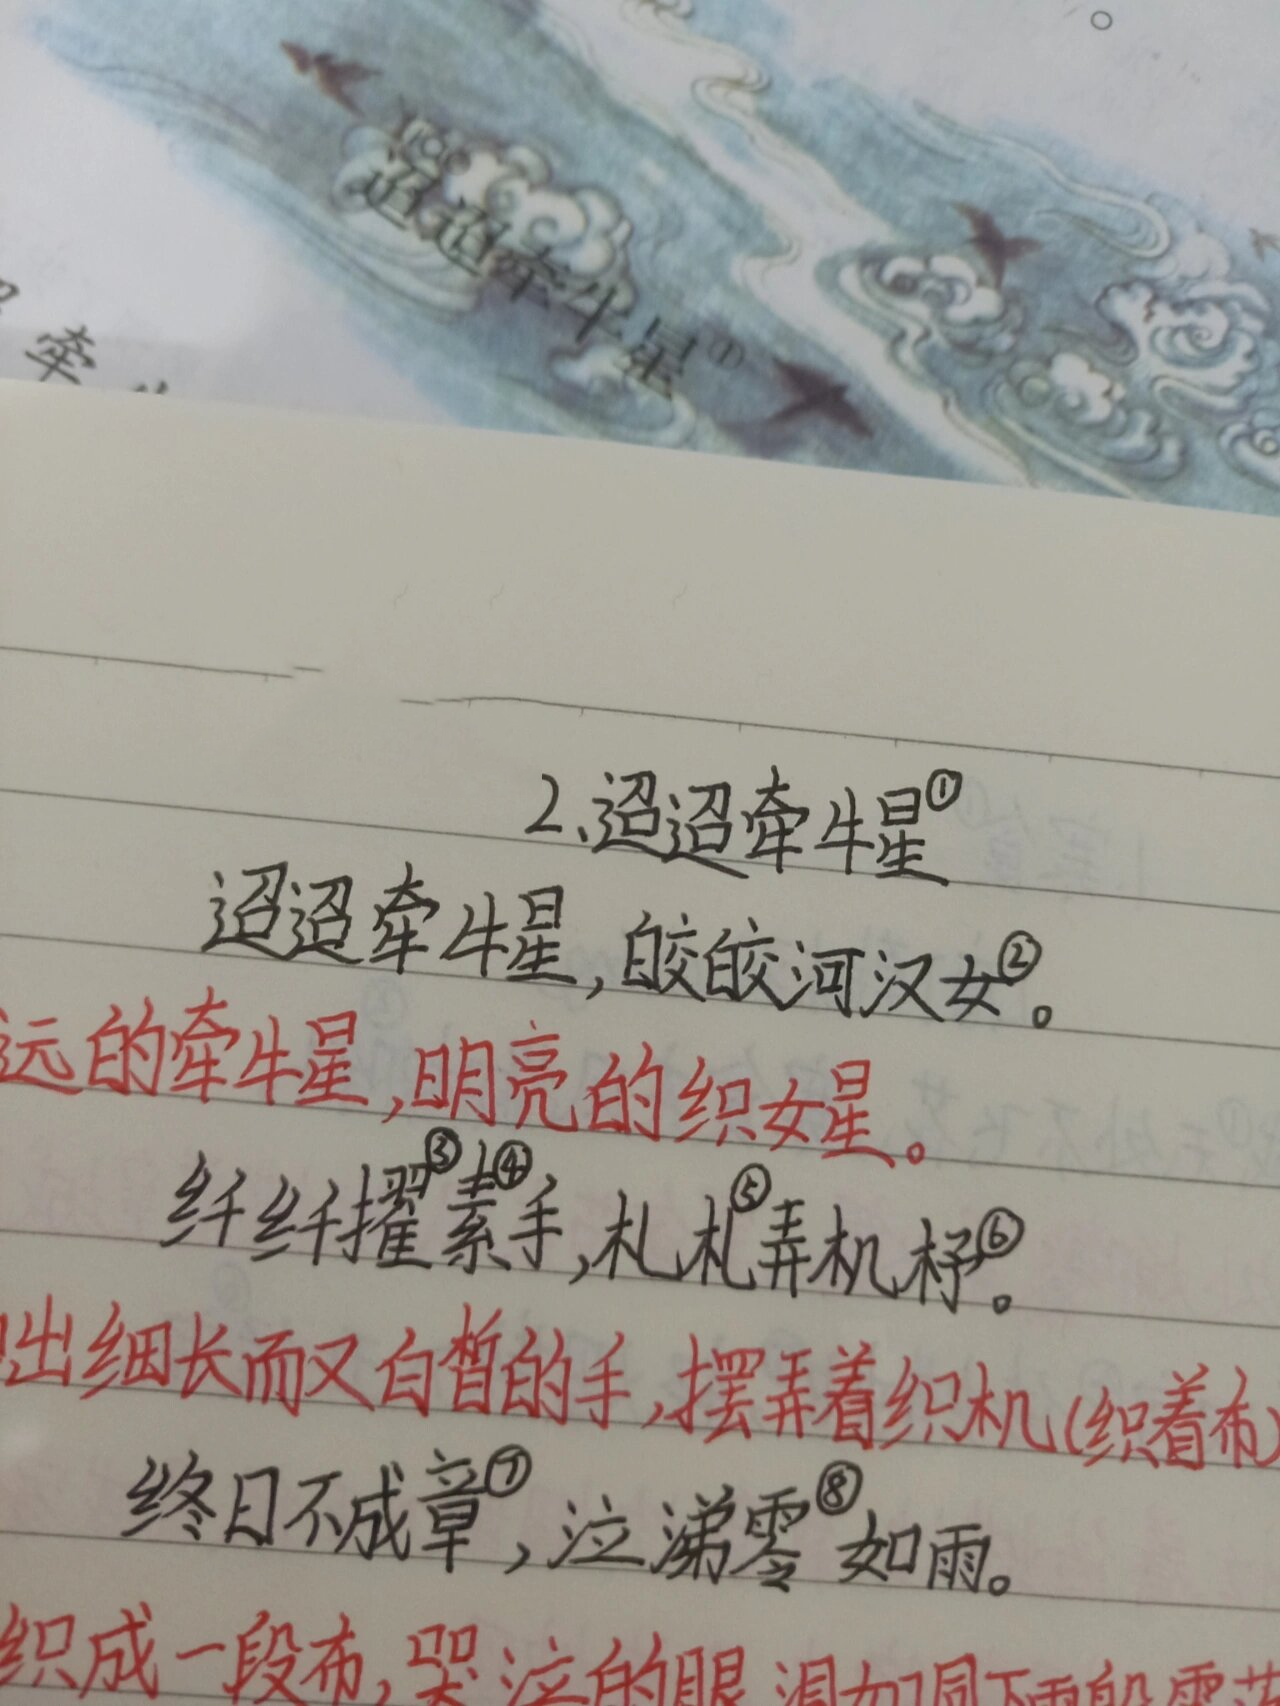 。
迢迢牵牛星①
牵
2、迢迢牵牛星①
迢迢牵牛星,皎皎河汉女②。
远的牵牛星,明亮的织女星。
纤纤擢③素④手,札札⑤弄机杼⑥。
出细长而又白皙的手,摆弄着织机(织着布)
终日不成章⑦,泣涕零⑧如雨。
织成一段布,哭泣的眼泪如同下雨般零落